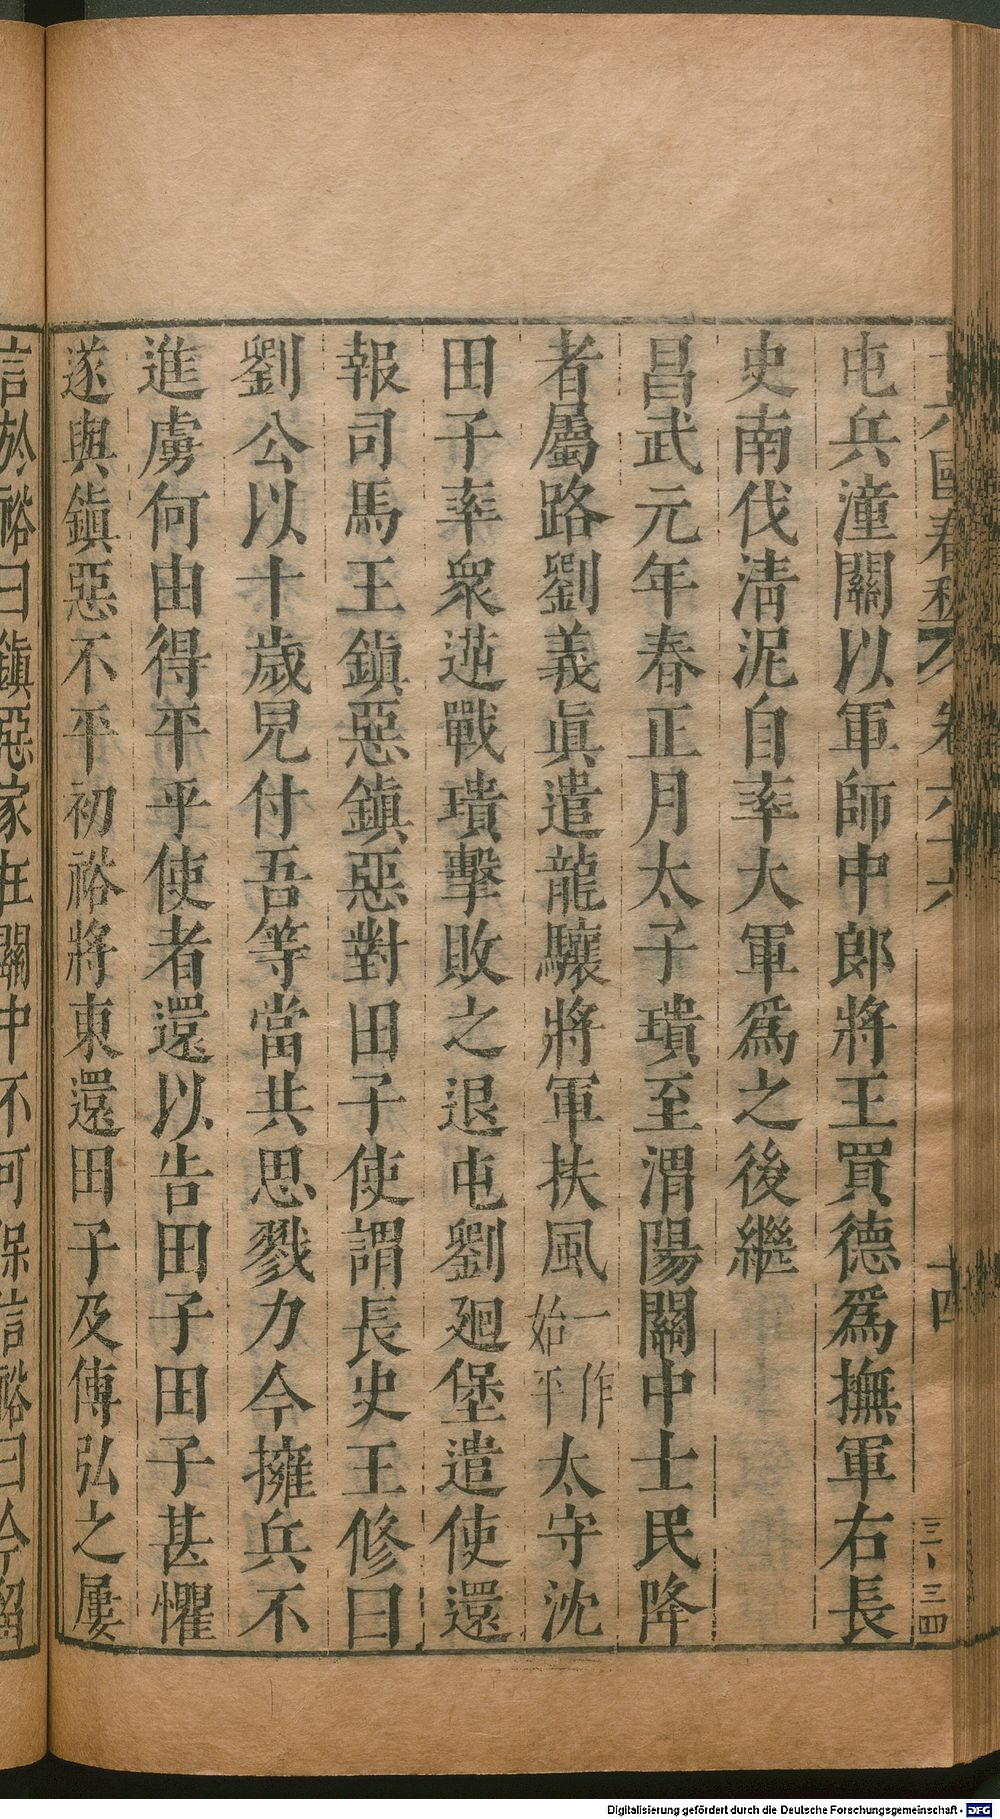 十六國春秋 卷六十六 十四 三、三四
屯兵潼關以軍師中郎將王買德爲撫軍右長
史南伐淸泥自率大軍爲之後繼
昌武元年春正月太子璝至渭陽關中士民降
者屬路劉義眞遣龍驤將軍扶風一作始平太守沈
田子率衆逆戰璝擊敗之退屯劉廻堡遣使還
報司馬王鎭惡鎭惡對田子使謂長史王修曰
劉公以十歲兒付吾等當共思戮力今擁兵不
進虜何由得平乎使者還以告田子田子甚懼
遂與鎭惡不平初裕將東還田子及傅弘之屢
言於裕曰鎭惡家在關中不可保信裕曰今留
Digitalisierung gefördert durch die Deutsche Forschungsgemeinschaft - DFG